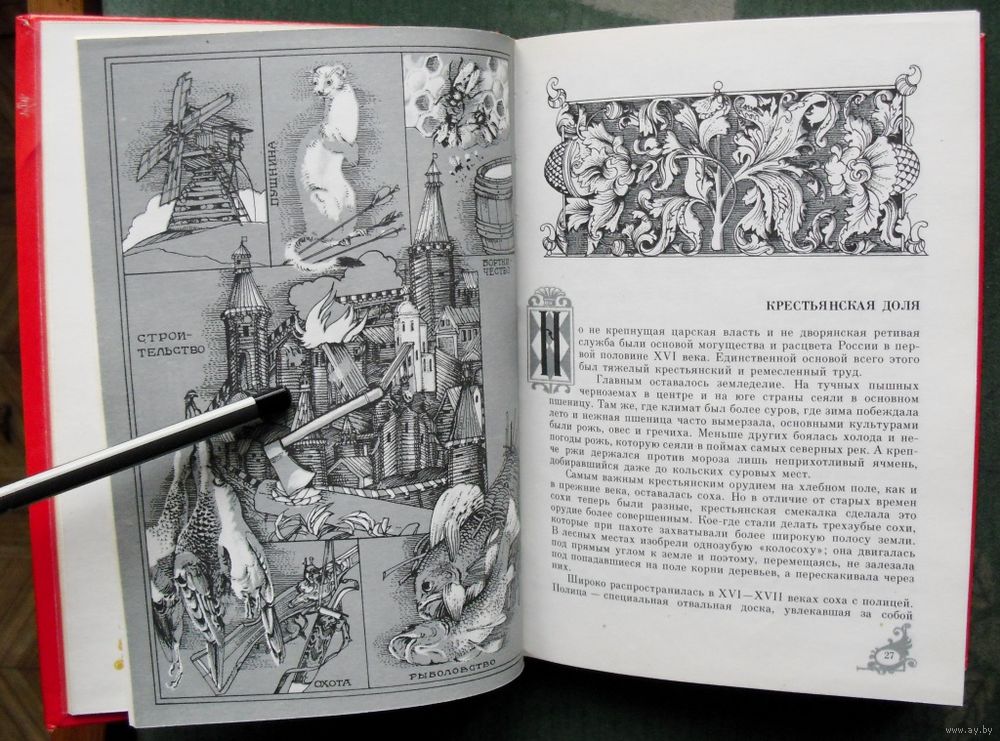 ПУШНИНА
БОРТНИ-
ЧЕСТВО
СТРОИ-
ТЕЛЬСТВО
ОХОТА
РЫБОЛОВСТВО
КРЕСТЬЯНСКАЯ ДОЛЯ
Но не крепнущая царская власть и не дворянская ретивая
служба были основой могущества и расцвета России в пер-
вой половине XVI века. Единственной основой всего этого
был тяжелый крестьянский и ремесленный труд.
Главным оставалось земледелие. На тучных пышных
черноземах в центре и на юге страны сеяли в основном
пшеницу. Там же, где климат был более суров, где зима побеждала
лето и нежная пшеница часто вымерзала, основными культурами
были рожь, овес и гречиха. Меньше других боялась холода и не-
погоды рожь, которую сеяли в поймах самых северных рек. А креп-
че ржи держался против мороза лишь неприхотливый ячмень,
добиравшийся даже до кольских суровых мест.
Самым важным крестьянским орудием на хлебном поле, как и
в прежние века, оставалась соха. Но в отличие от старых времен
сохи теперь были разные, крестьянская смекалка сделала это
орудие более совершенным. Кое-где стали делать трехзубые сохи,
которые при пахоте захватывали более широкую полосу земли.
В лесных местах изобрели однозубую «колосоху»; она двигалась
под прямым углом к земле и поэтому, перемещаясь, не залезала
под попадавшиеся на поле корни деревьев, а перескакивала через
них.
Широко распространилась в XVI—XVII веках соха с полицей.
Полица — специальная отвальная доска, увлекавшая за собой
27
www.ay.by